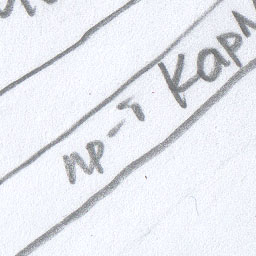 пр-т Карл